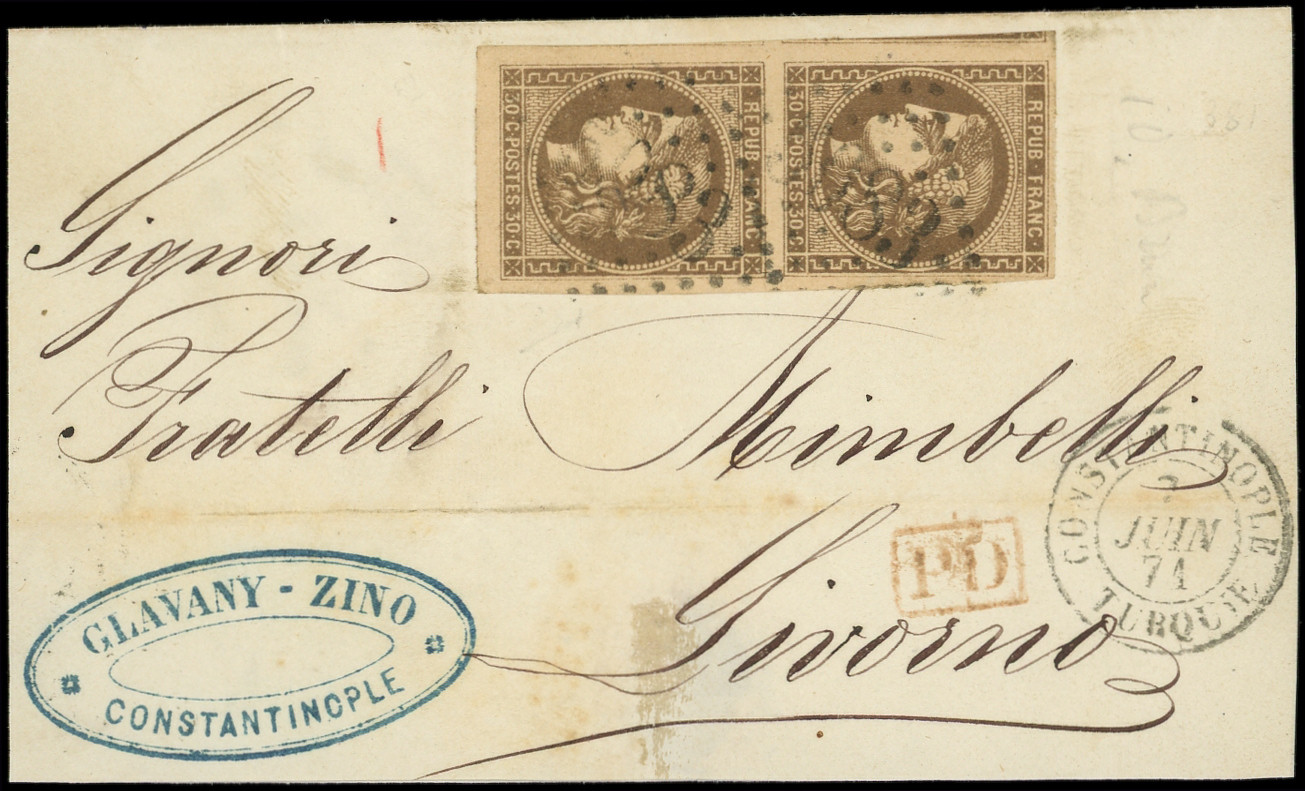 30·C·POSTES·30·C
REPUB·FRANC·
30·C·POSTES·30·C
REPUB·FRANC·
Signori
Fratelli Mimbelli
Livorno
PD
CONSTANTINOPLE
JUIN
71
TURQUIE
GLAVANY - ZINO
CONSTANTINOPLE